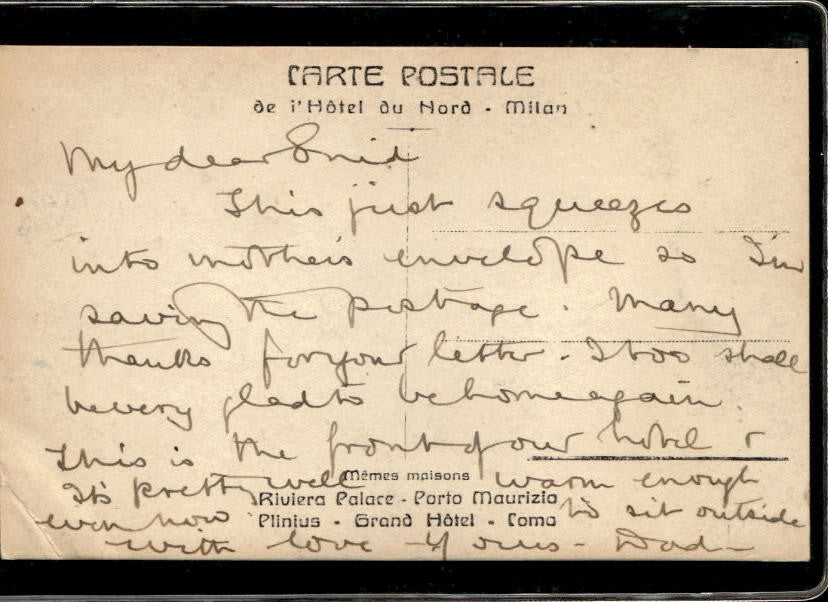 CARTE POSTALE
de l'Hôtel du Nord - Milan
My dear Enid
This just squeezes
into mother's envelope so I'm
saving the postage. Many
thanks for your letter. I too shall
be very glad to be home again.
This is the front of our hotel &
It's pretty well warm enough
Mêmes maisons
Riviera Palace - Porto Maurizio
even now to sit outside
Plinius - Grand Hôtel - Como
with love Yours - Dad -